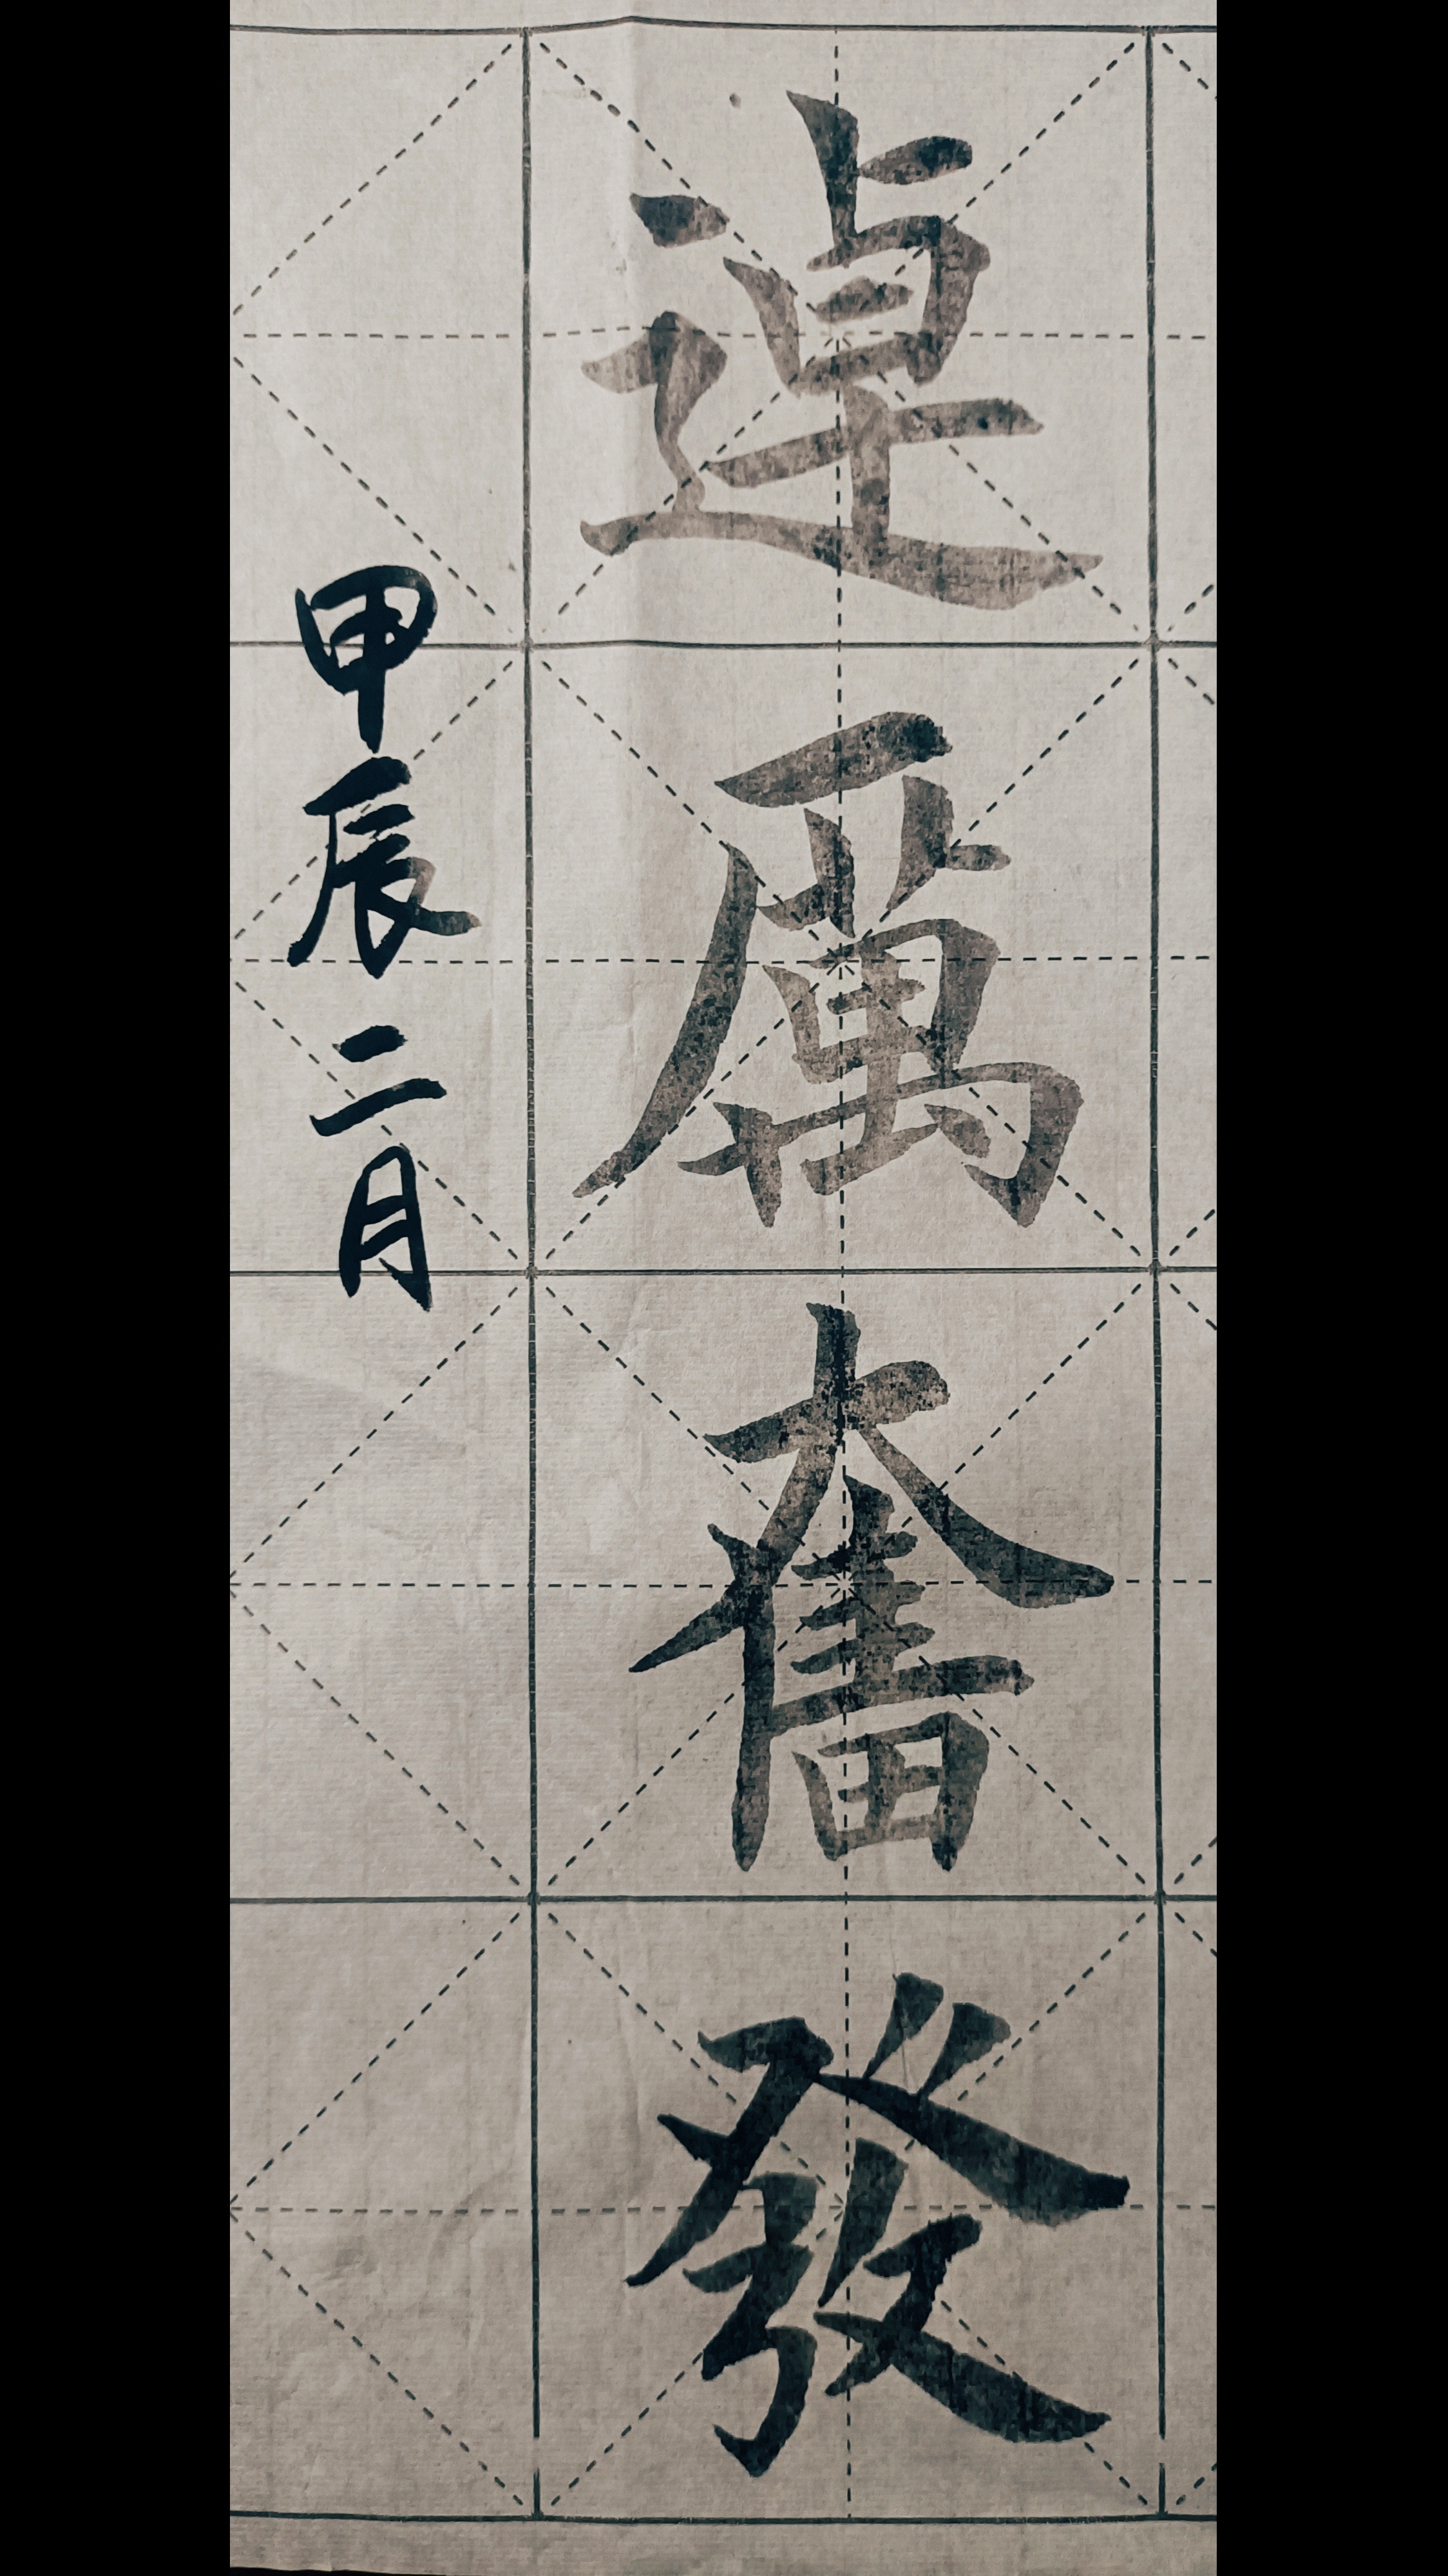 逴厲奮發
甲辰二月